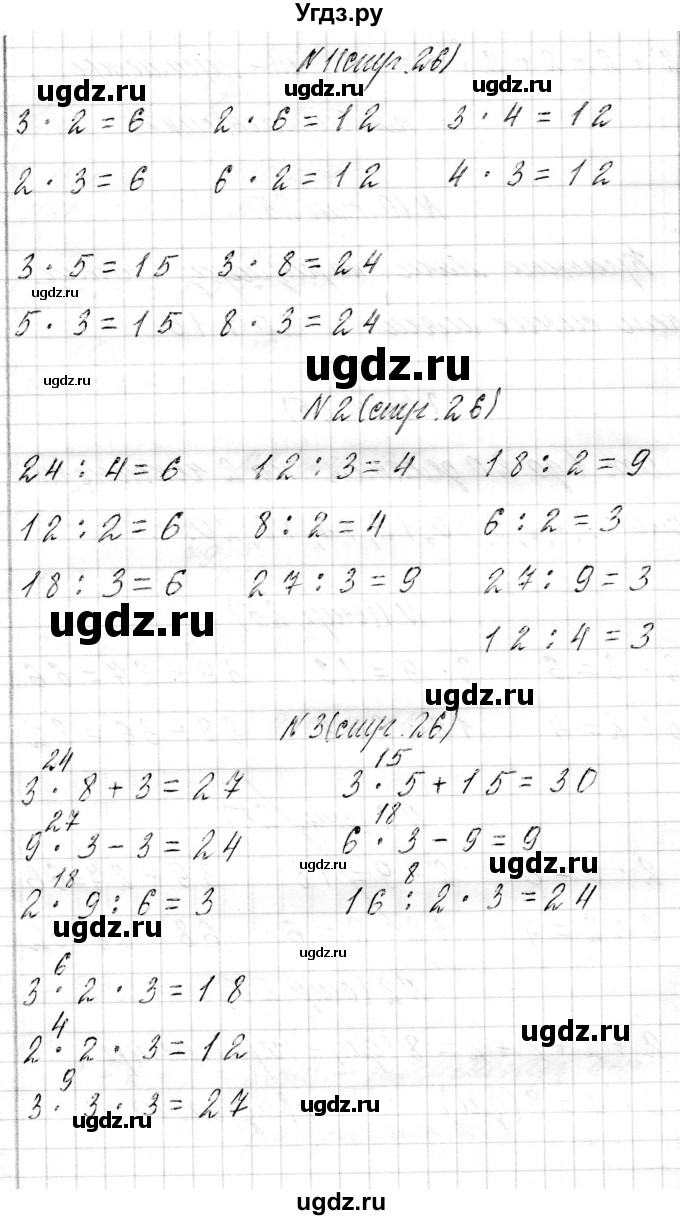 Угдз.ру
N1(стр.26)
ugdz.ru ugdz.ru ugdz.ru
3 · 2 = 6 2 · 6 = 12 3 · 4 = 12
2 · 3 = 6 6 · 2 = 12 4 · 3 = 12
3 · 5 = 15 3 · 8 = 24
ugdz.ru
5 · 3 = 15 8 · 3 = 24
ugdz.ru ugdz.ru
N2(стр.26)
24 : 4 = 6 12 : 3 = 4 18 : 2 = 9
12 : 2 = 6 8 : 2 = 4 6 : 2 = 3
18 : 3 = 6 27 : 3 = 9 27 : 9 = 3
ugdz.ru
12 : 4 = 3
ugdz.ru
N3(стр.26)
24 15
3 · 8 + 3 = 27 3 · 5 + 15 = 30
27 18
9 · 3 - 3 = 24 6 · 3 - 9 = 9
ugdz.ru ugdz.ru
18 8
2 · 9 : 6 = 3 16 : 2 · 3 = 24
ugdz.ru
ugdz.ru
6
3 · 2 · 3 = 18
4
ugdz.ru
2 · 2 · 3 = 12
9
3 · 3 · 3 = 27
ugdz.ru ugdz.ru
ugdz.ru